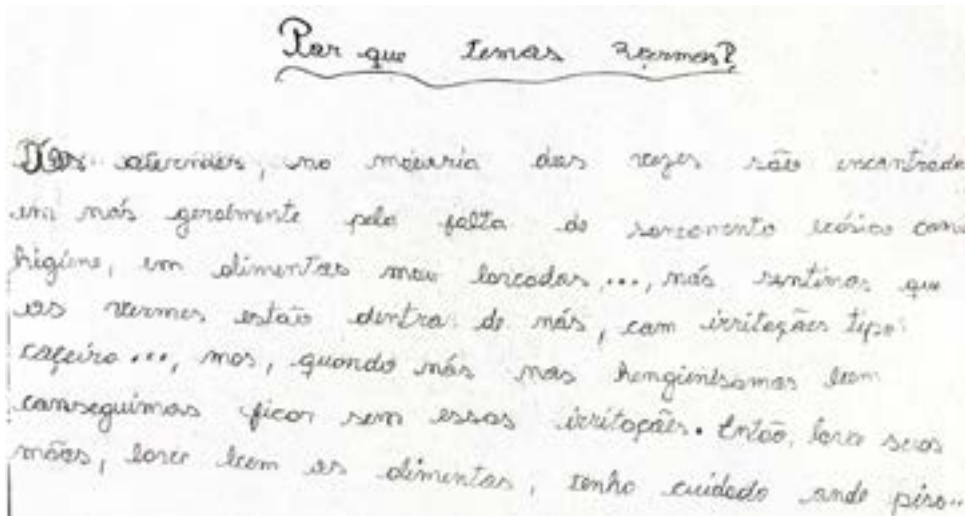 Por que temos vermes?
Os vermes, na maioria das vezes são encontrado
em nós geralmente pela falta de saneamento básico como
higiene, em alimentos mau lavados,..., nós sentimos que
os vermes estão dentro de nós, com irritações tipo
coçeira..., mas, quando nós nos hengienisamos bem
conseguimos ficar sem essas irritações. Então, lave suas
mãos, lave bem os alimentos, tenha cuidado onde pisa..